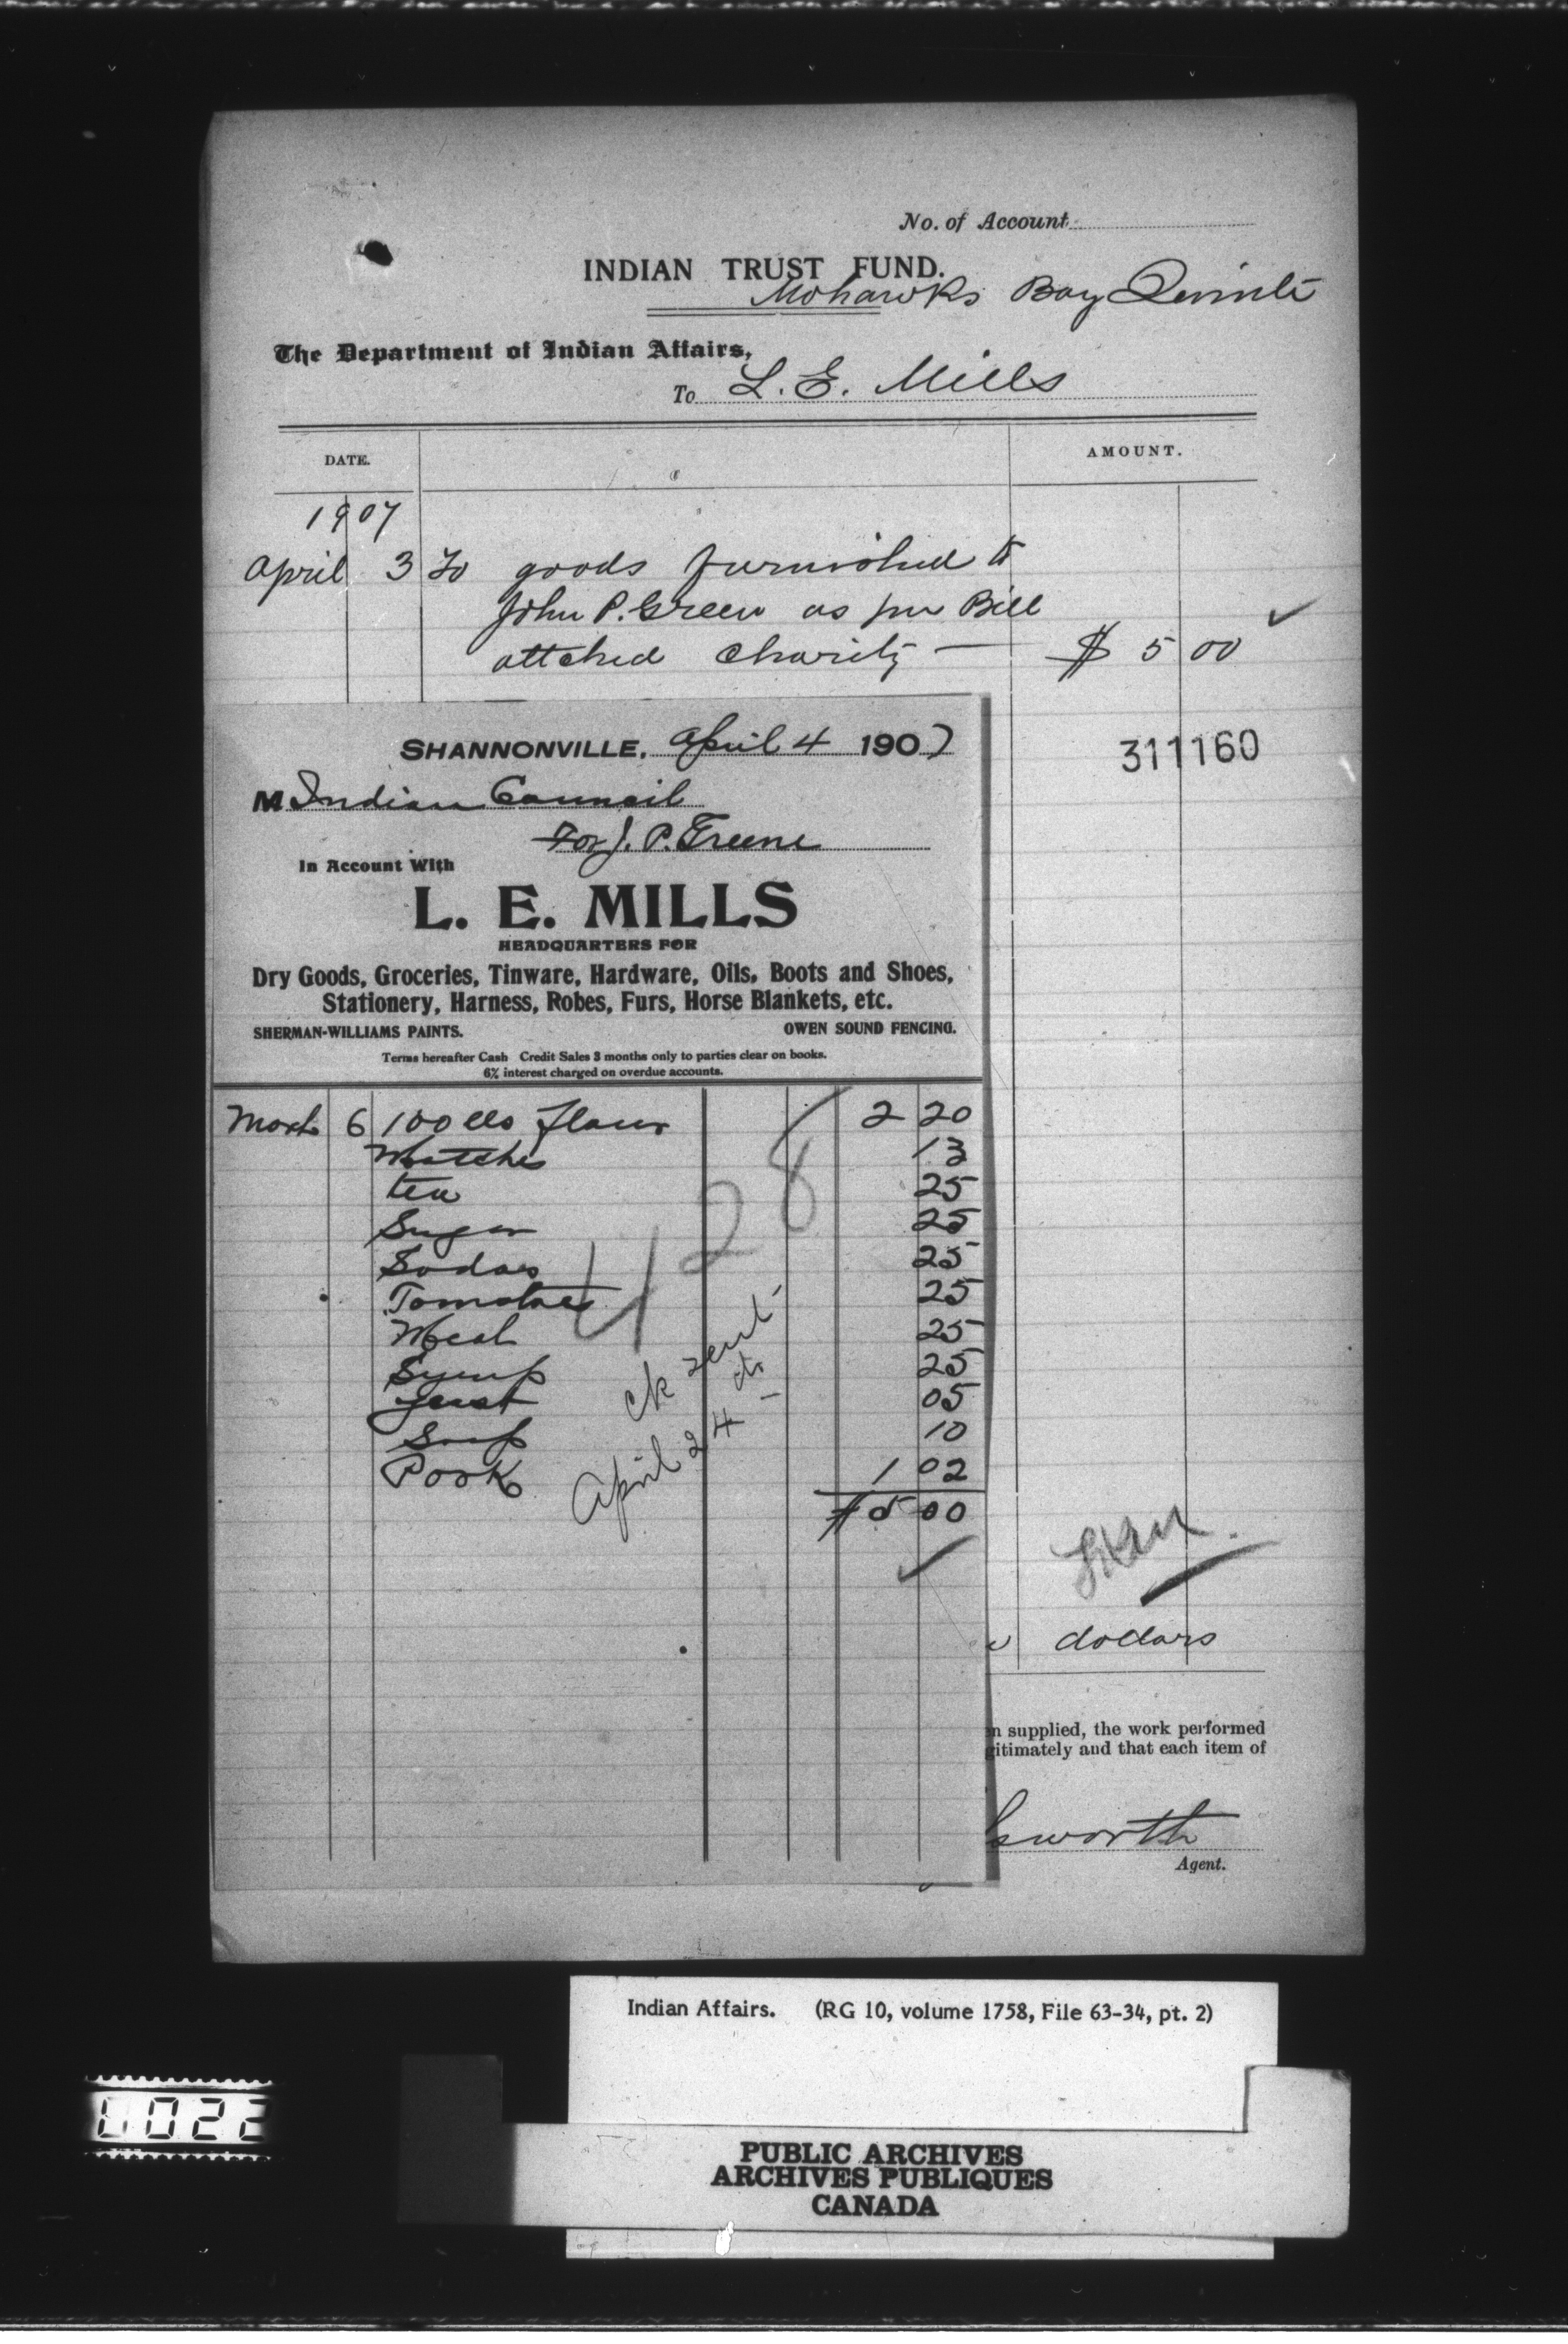 No. of Account
INDIAN TRUST FUND.
Mohawks Bay Quinte
The Department of Indian Affairs,
To L. E. Mills
DATE. AMOUNT.
1907
April 3 To goods furnished to
John P. Green as per Bill
attched Charity — $ 5 00
311160
SHANNONVILLE, April 4 1907
M Indian Council
For J. P. Greene
In Account With
L. E. MILLS
HEADQUARTERS FOR
Dry Goods, Groceries, Tinware, Hardware, Oils, Boots and Shoes,
Stationery, Harness, Robes, Furs, Horse Blankets, etc.
SHERMAN-WILLIAMS PAINTS. OWEN SOUND FENCING.
Terms hereafter Cash Credit Sales 3 months only to parties clear on books.
6% interest charged on overdue accounts.
March 6 100 lbs flour 2 20
Matches 13
tea 25
Sugar 25
Sodas 25
Tomatoes 25
Meal 25
Syrup 25
yeast 05
Soap 10
Pork 1 02
$5 00
428
ck sent
April 24
dollars
n supplied, the work performed
gitimately and that each item of
sworth
Agent.
Indian Affairs. (RG 10, volume 1758, File 63-34, pt. 2)
0022
PUBLIC ARCHIVES
ARCHIVES PUBLIQUES
CANADA